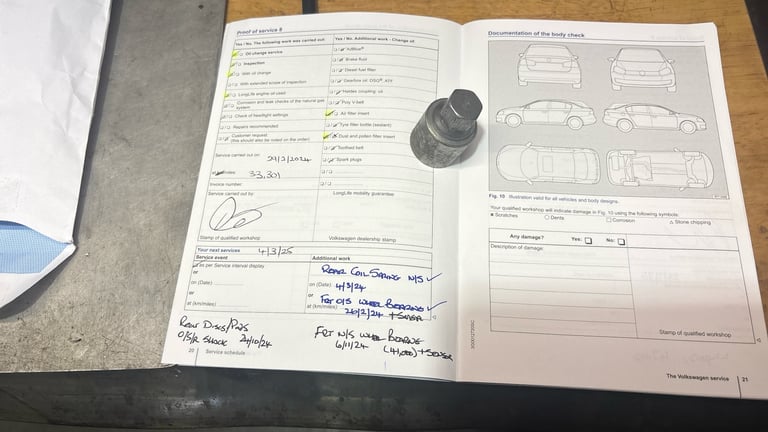 Proof of service 6
Yes / No. The following work was carried out:
Oil change service
Inspection
With oil change
With extended scope of inspection
LongLife engine oil used
Corrosion and leak checks of the natural gas system
Check of headlight settings
Repairs recommended
Customer request
(this should also be noted on the order)
Service carried out on:
at km/miles: 33,301
Invoice number:
Service carried out by:
Stamp of qualified workshop
Yes / No. Additional work - Change of:
AdBlue®
Brake fluid
Diesel fuel filter
Gearbox oil: DSG®, ATF
Haldex coupling: oil
Poly V-belt
Air filter insert
Tyre filler bottle (sealant)
Dust and pollen filter insert
Toothed belt
Spark plugs
LongLife mobility guarantee
Volkswagen dealership stamp
Your next services 4/3/25
Service event
as per Service interval display
or
on (Date)
or
at (km/miles)
Additional work
REAR COIL SPRING N/S ✓
on (Date) 4/3/24
or
FRT O/S WHEEL BEARING ✓
at (km/miles) 26/2/24 + SENSOR
REAR DISCS/PADS
O/S/R SHOCK 21/10/24
FRT N/S WHEEL BEARING
6/11/24 (41,000) + SENSOR
20 Service schedule
Documentation of the body check
Fig. 10 Illustration valid for all vehicles and body designs.
Your qualified workshop will indicate damage in Fig. 10 using the following symbols:
x Scratches ○ Dents □ Corrosion △ Stone chipping
Any damage? Yes: No:
Description of damage:
Stamp of qualified workshop
The Volkswagen service 21